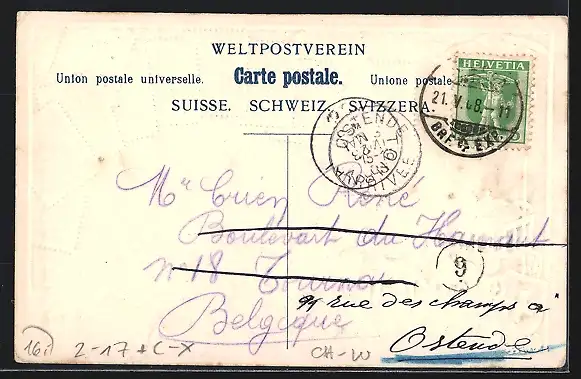 WELTPOSTVEREIN
Union postale universelle. Carte postale. Unione postale
SUISSE. SCHWEIZ. SVIZZERA.
HELVETIA
21.V.08
BRF. EXP.
OSTENDE
ARRIVÉE
Mr René
Boulevart du Hainaut
n° 18 Tournai
Belgique
9
rue des champs
Ostende
16.-
2-17 + C-X
CH-W